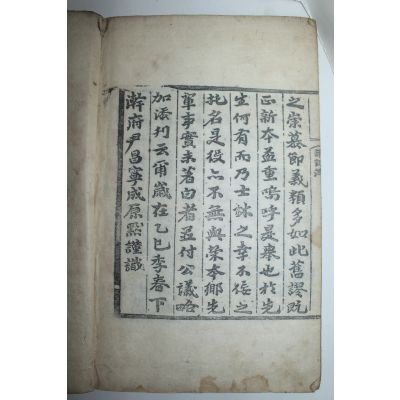 之崇慕節義類多如此舊謬旣
正新本益重嗚呼是擧也於先
生何有而乃士林之幸不佞之
托名是役亦不無與榮本鄕先
輩事實未著白者並付公議略
加添刊云爾歲在乙巳季春下
澣府尹昌寧成原黙謹識